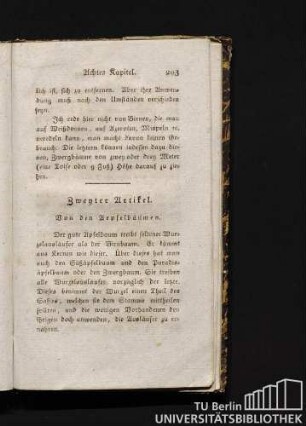 Achtes Kapitel. 203
lich ist, sich zu entfernen. Aber ihre Anwen-
dung muß nach den Umständen verschieden
seyn.
Ich rede hier nicht von Birnen, die man
auf Weißdornen, auf Azerolen, Mispeln rc.
veredeln kann, man macht keinen Ge-
brauch. Die letztern können indessen dazu die-
nen, Zwergbäume von zwey oder drey Meter
(eine Toise oder 9 Fuß) Höhe daraus zu zie-
hen.
Zweyter Artikel.
Von den Aepfelbäumen.
Der gute Apfelbaum treibt seltener Wur-
zelausläufer als der Birnbaum. Er kömmt
aus Kernen wie dieser. Aber diese hat man
auch den Süßapfelbaum und den Paradies-
apfelbaum oder den Zwergbaum. Sie treiben
alle Wurzelausläufer, vorzüglich der letzte.
Dieses benimmt der Wurzel einen Theil des
Saftes, welchen sie dem Stamme mittheilen
sollten, und die wenigen Vorhandenen den
ihrigen doch anwenden, die Ausläufer zu er-
nähren.
TU Berlin
UNIVERSITÄTSBIBLIOTHEK